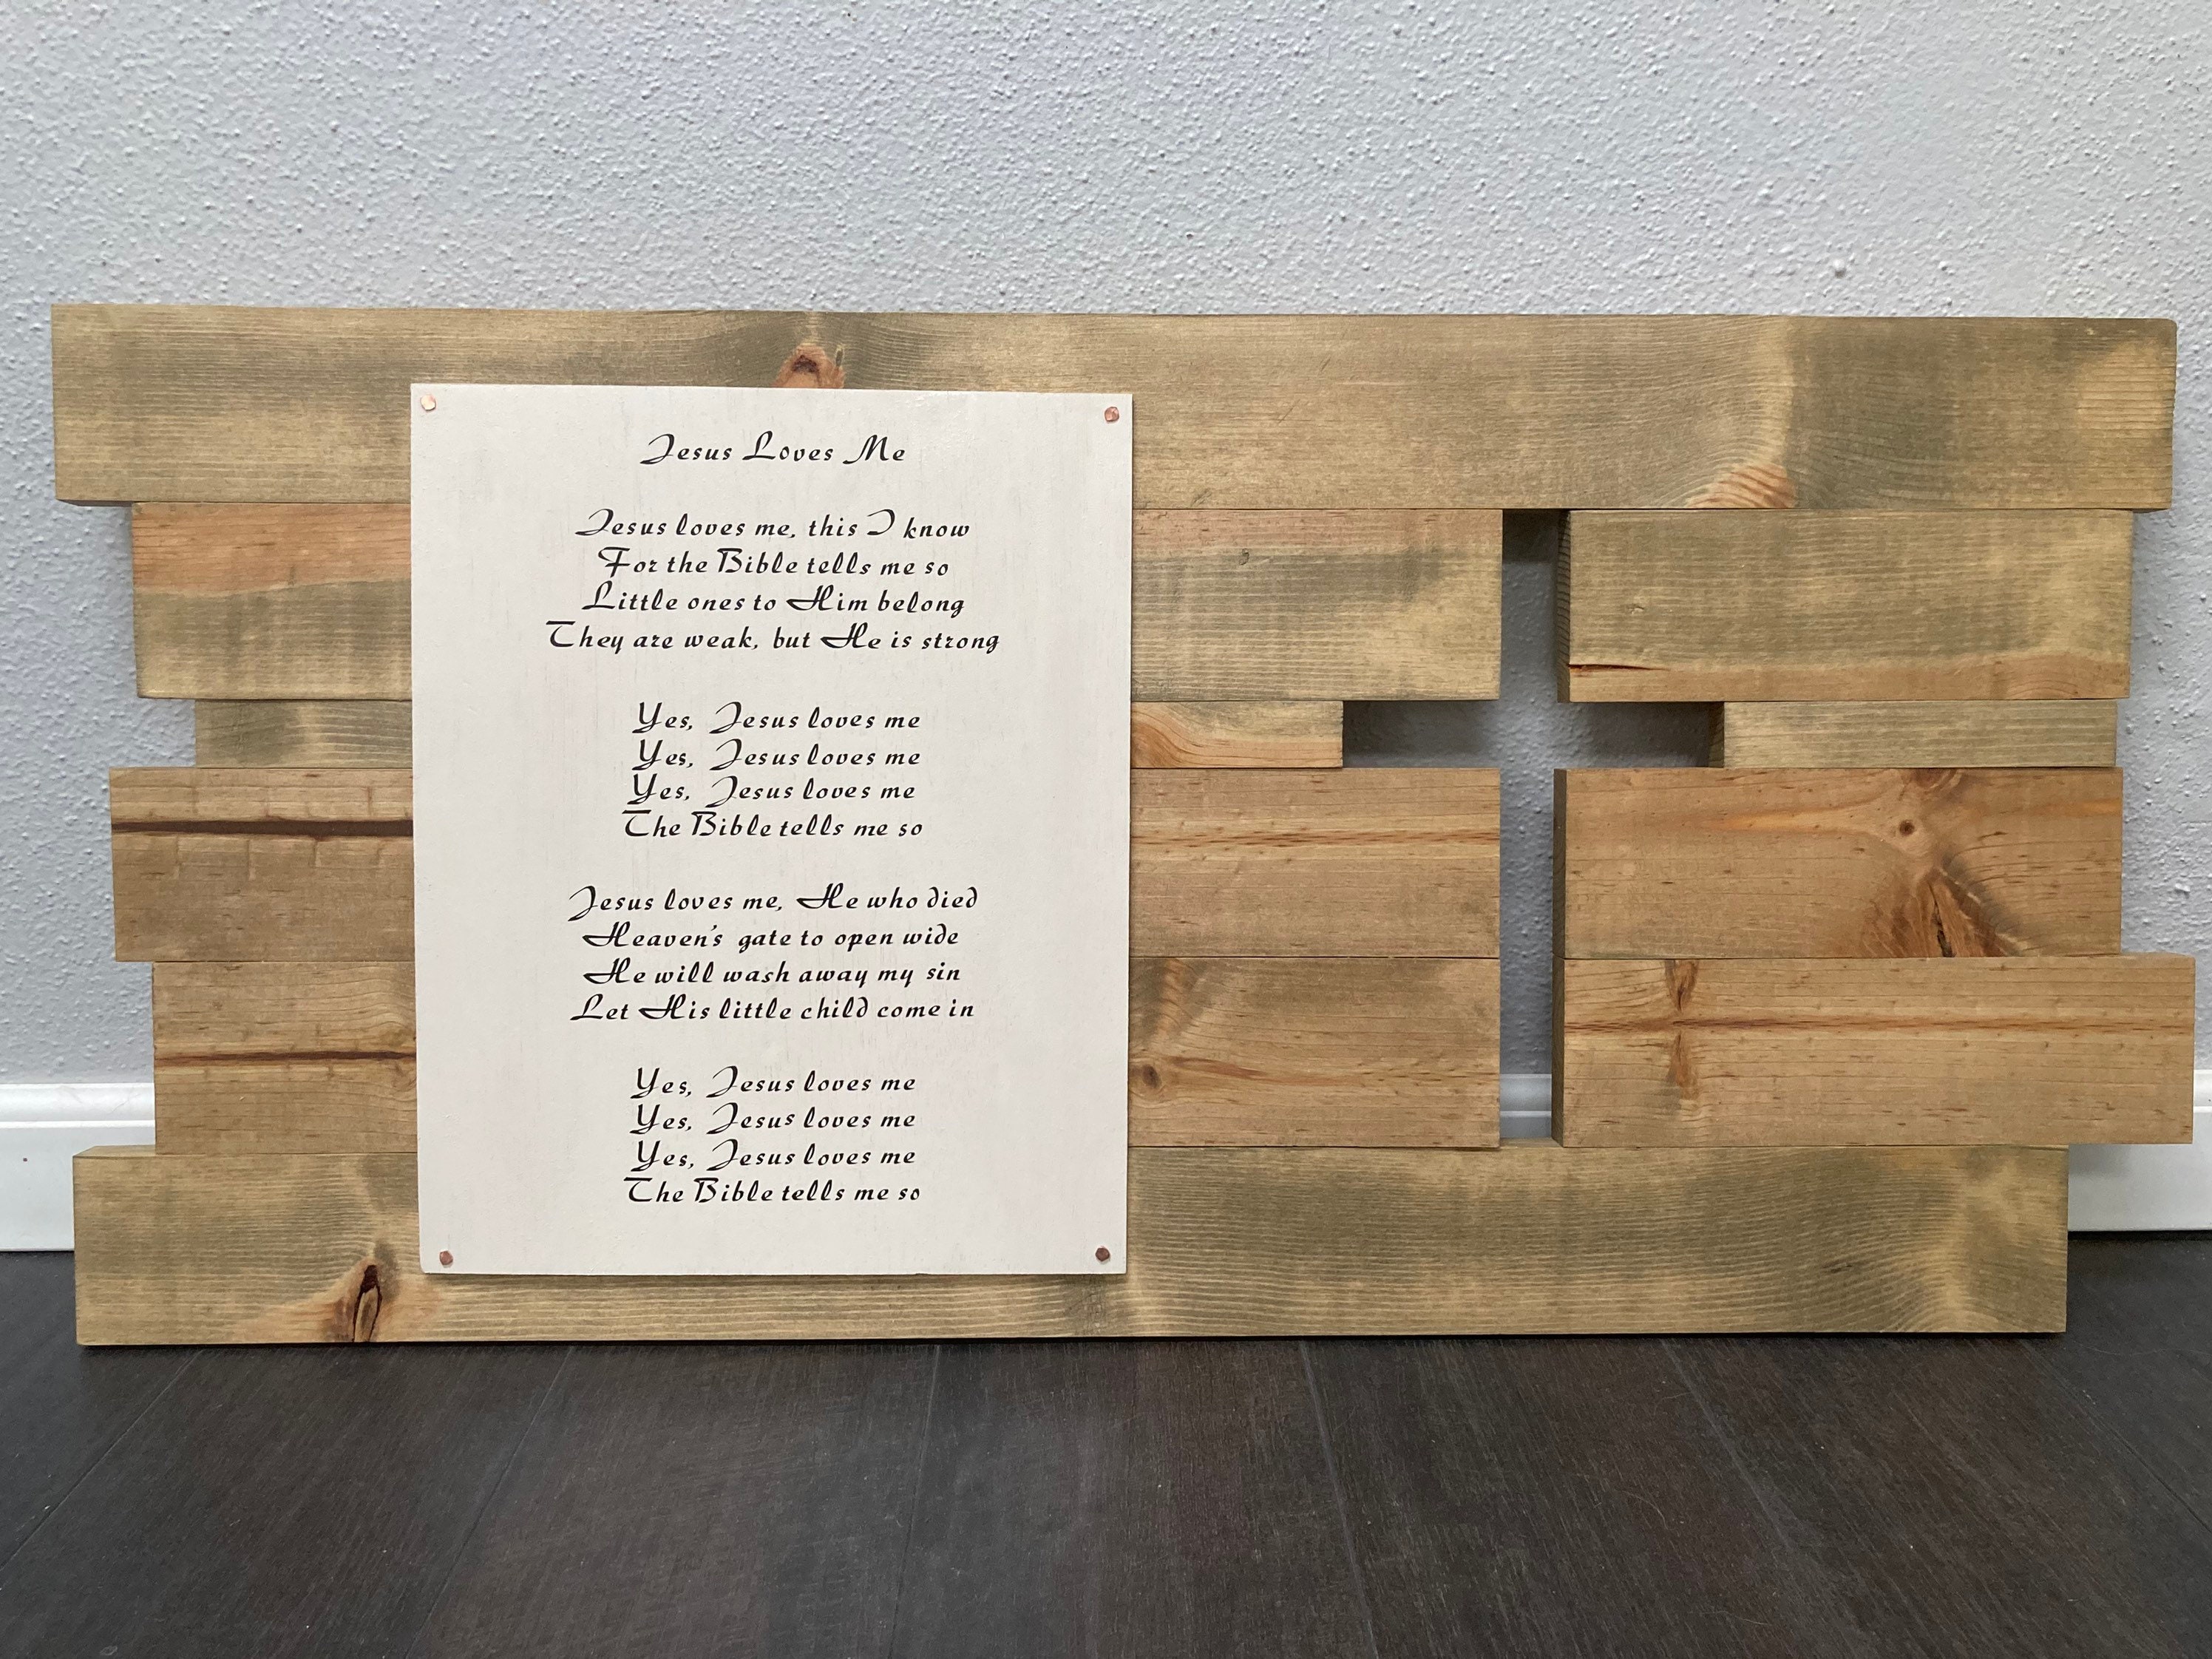 Jesus Loves Me
Jesus loves me, this I know
For the Bible tells me so
Little ones to Him belong
They are weak, but He is strong
Yes, Jesus loves me
Yes, Jesus loves me
Yes, Jesus loves me
The Bible tells me so
Jesus loves me, He who died
Heaven's gate to open wide
He will wash away my sin
Let His little child come in
Yes, Jesus loves me
Yes, Jesus loves me
Yes, Jesus loves me
The Bible tells me so